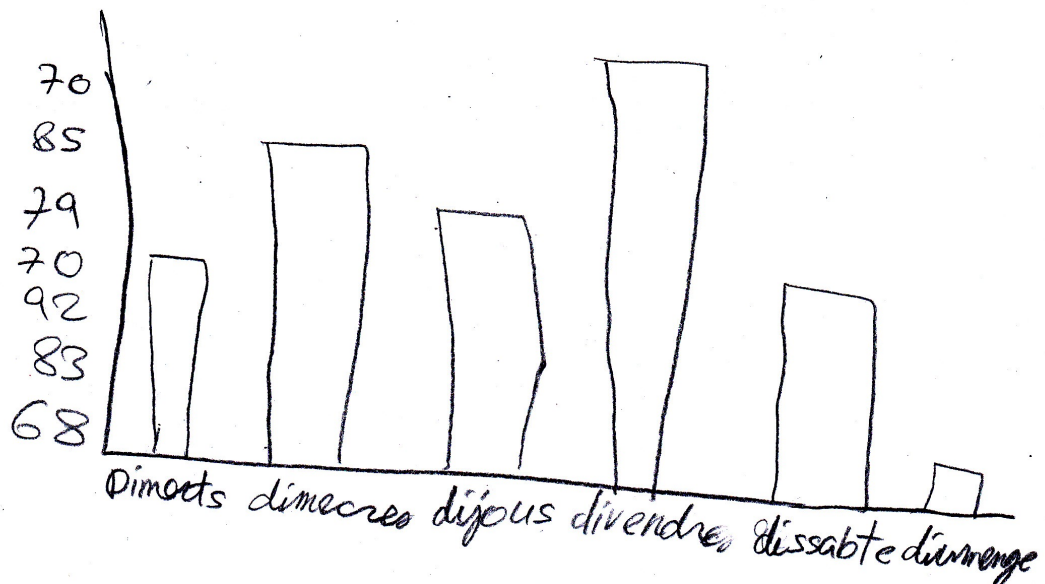 70
85
79
70
92
83
68
Dimarts dimecres dijous divendres dissabte diumenge